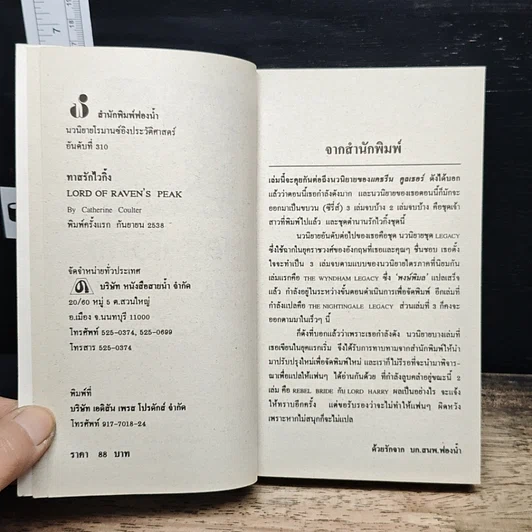 7
สำนักพิมพ์ฟองน้ำ
นวนิยายโรมานซ์อิงประวัติศาสตร์
อันดับที่ 310
ทาสรักไวกิ้ง
LORD OF RAVEN'S PEAK
By Catherine Coulter
พิมพ์ครั้งแรก กันยายน 2538
จัดจำหน่ายทั่วประเทศ
บริษัท หนังสือสายน้ำ จำกัด
20/60 หมู่ 5 ต.สวนใหญ่
อ.เมือง จ.นนทบุรี 11000
โทรศัพท์ 525-0374, 525-0699
โทรสาร 525-0374
พิมพ์ที่
บริษัท เอดิสัน เพรส โปรดักส์ จำกัด
โทรศัพท์ 917-7018-24
ราคา 88 บาท
จากสำนักพิมพ์
เล่มนี้จะคุยกันต่อถึงนวนิยายของแคธรีน คูลเธอร์ ดังได้บอก
แล้วว่าตอนนี้เธอกำลังดังมาก และนวนิยายของเธอตอนนี้ก็มักจะ
ออกมาเป็นขบวน (ซีรี่ส์) 3 เล่มจบบ้าง 2 เล่มจบบ้าง คือชุดเจ้า
สาวที่พิมพ์ไปแล้ว และชุดตำนานรักไวกิ้งชุดนี้
นวนิยายอันดับต่อไปของเธอคือชุด นวนิยายชุด LEGACY
ซึ่งใช้ฉากในยุคราชวงศ์ของอังกฤษที่เธอและคุณๆ ชื่นชอบ เธอตั้ง
ใจจะทำเป็น 3 เล่มจบตามแบบของนวนิยายไตรภาคที่นิยมกัน
เล่มแรกคือ THE WYNDHAM LEGACY ซึ่ง "พงษ์พิมล" แปลเสร็จ
แล้ว กำลังอยู่ในระหว่างขั้นตอนดำเนินการเพื่อจัดพิมพ์ อีกเล่มที่
กำลังแปลคือ THE NIGHTINGALE LEGACY ส่วนเล่มที่ 3 ก็คงจะ
ออกตามมาในเร็วๆ นี้
ก็ดังที่บอกแล้วว่าเพราะเธอกำลังดัง นวนิยายบางเล่มที่
เธอเขียนในยุคแรกเริ่ม จึงได้รับการทาบทามจากสำนักพิมพ์ให้นำ
มาปรับปรุงใหม่เพื่อจัดพิมพ์ใหม่ และเราก็ไม่รีรอที่จะนำมาพิจาร-
ณาเพื่อแปลให้แฟนๆ ได้อ่านกันด้วย ที่กำลังลูบคลำอยู่ขณะนี้ 2
เล่ม คือ REBEL BRIDE กับ LORD HARRY ผลเป็นอย่างไร จะแจ้ง
ให้ทราบอีกครั้ง แต่ขอรับรองว่าจะไม่ทำให้แฟนๆ ผิดหวัง
เพราะหากไม่สนุกก็จะไม่แปล
ด้วยรักจาก บก.สนพ.ฟองน้ำ